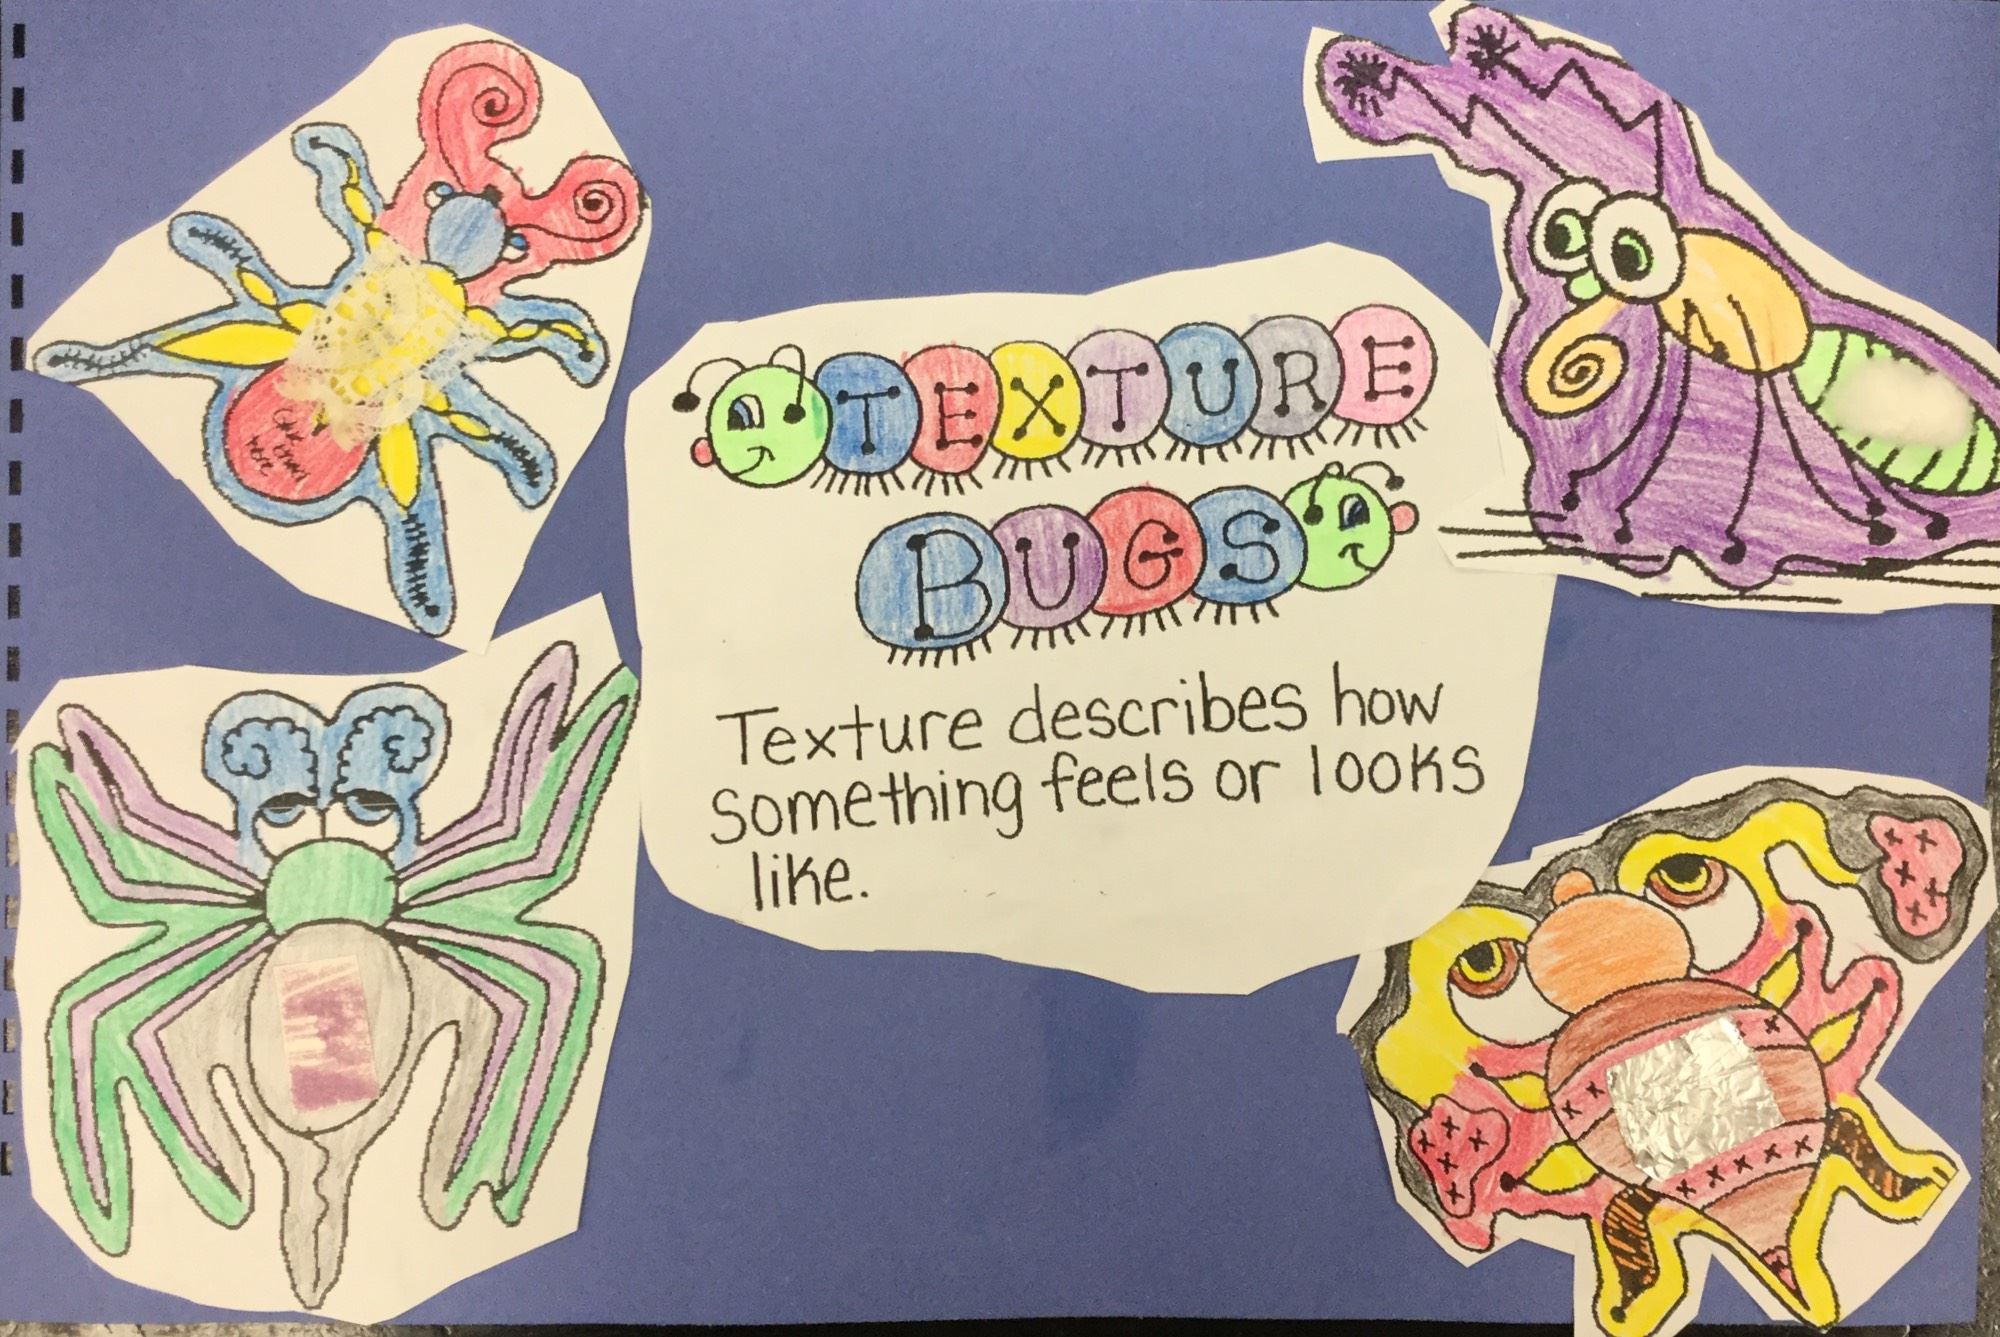 TEXTURE
BUGS
Texture describes how
something feels or looks
like.
Glue
here